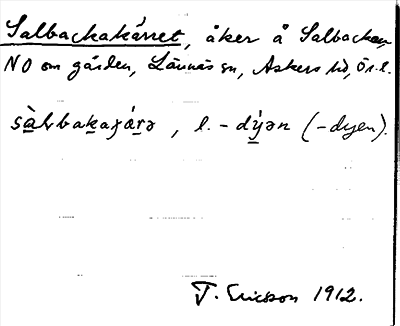 Salbackakärret, åker å Salbackan
NO om gården, Lännäs sn, Askers hd, Ör. l.
sàlbakaɟæ̀rə, l. -dýən (-dyen).
T. Ericsson 1912.